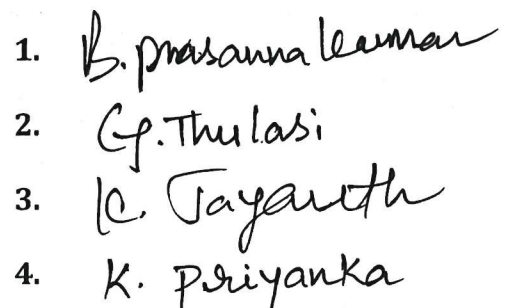 1. B. prasanna kumar
2. G. Thulasi
3. K. Jayanth
4. K. Priyanka